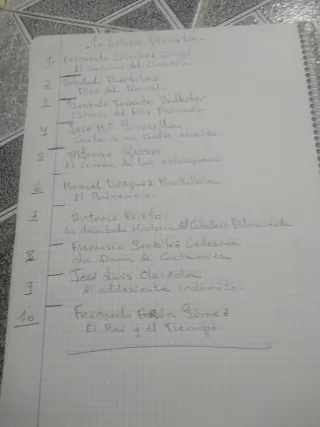 Planeta.
1 Fernando Sánchez Dragó
El camino del Corazón
2 Soledad Puértolas
Días del Arenal.
3 Gonzalo Torrente Ballester
Crónica del Rey Pasmado
4 José Mª Gironella
Carta a mi Padre muerto
5 Alfonso Grosso
El crimen de las estanqueras
6 Manuel Vázquez Montalbán
El Balneario.
7 Antonio Prieto
La desatada historia del Caballero Palmaverde
8 Francisco González Ledesma
La Dama de Cachemira
9 José Luis Olaizola
El adolescente indómito.
10 Fernando Fernán Gómez
El Mar y el Tiempo.